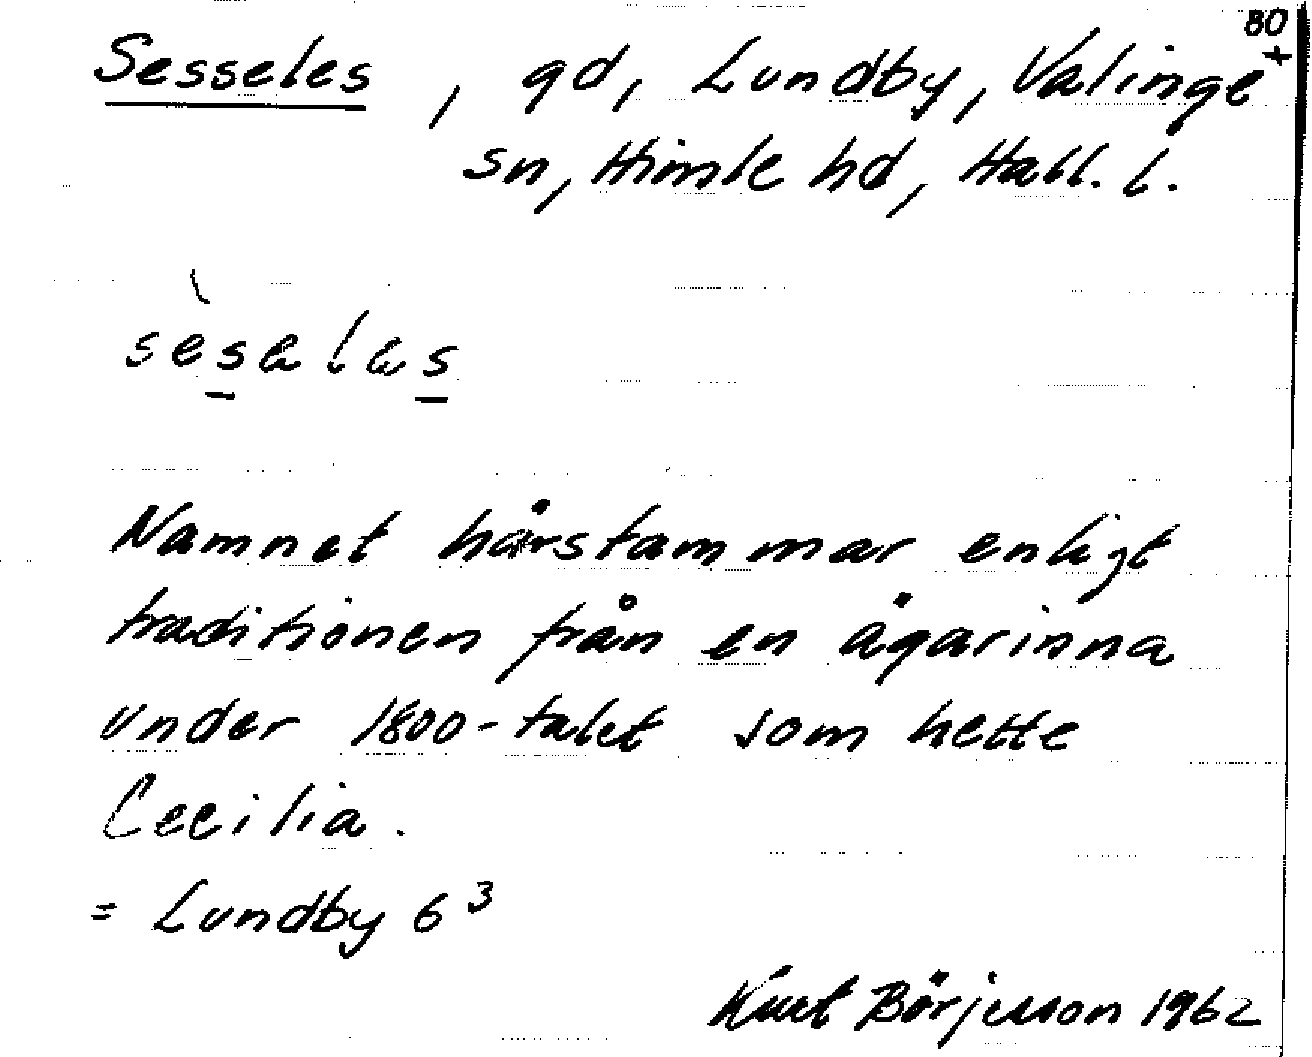 80
+
Sesseles, gd, Lundby, Valinge
sn, Himle hd, Hall. l.
sèsalas
Namnet härstammar enligt
traditionen från en ägarinna
under 1800-talet som hette
Cecilia.
= Lundby 6³
Kurt Börjesson 1962